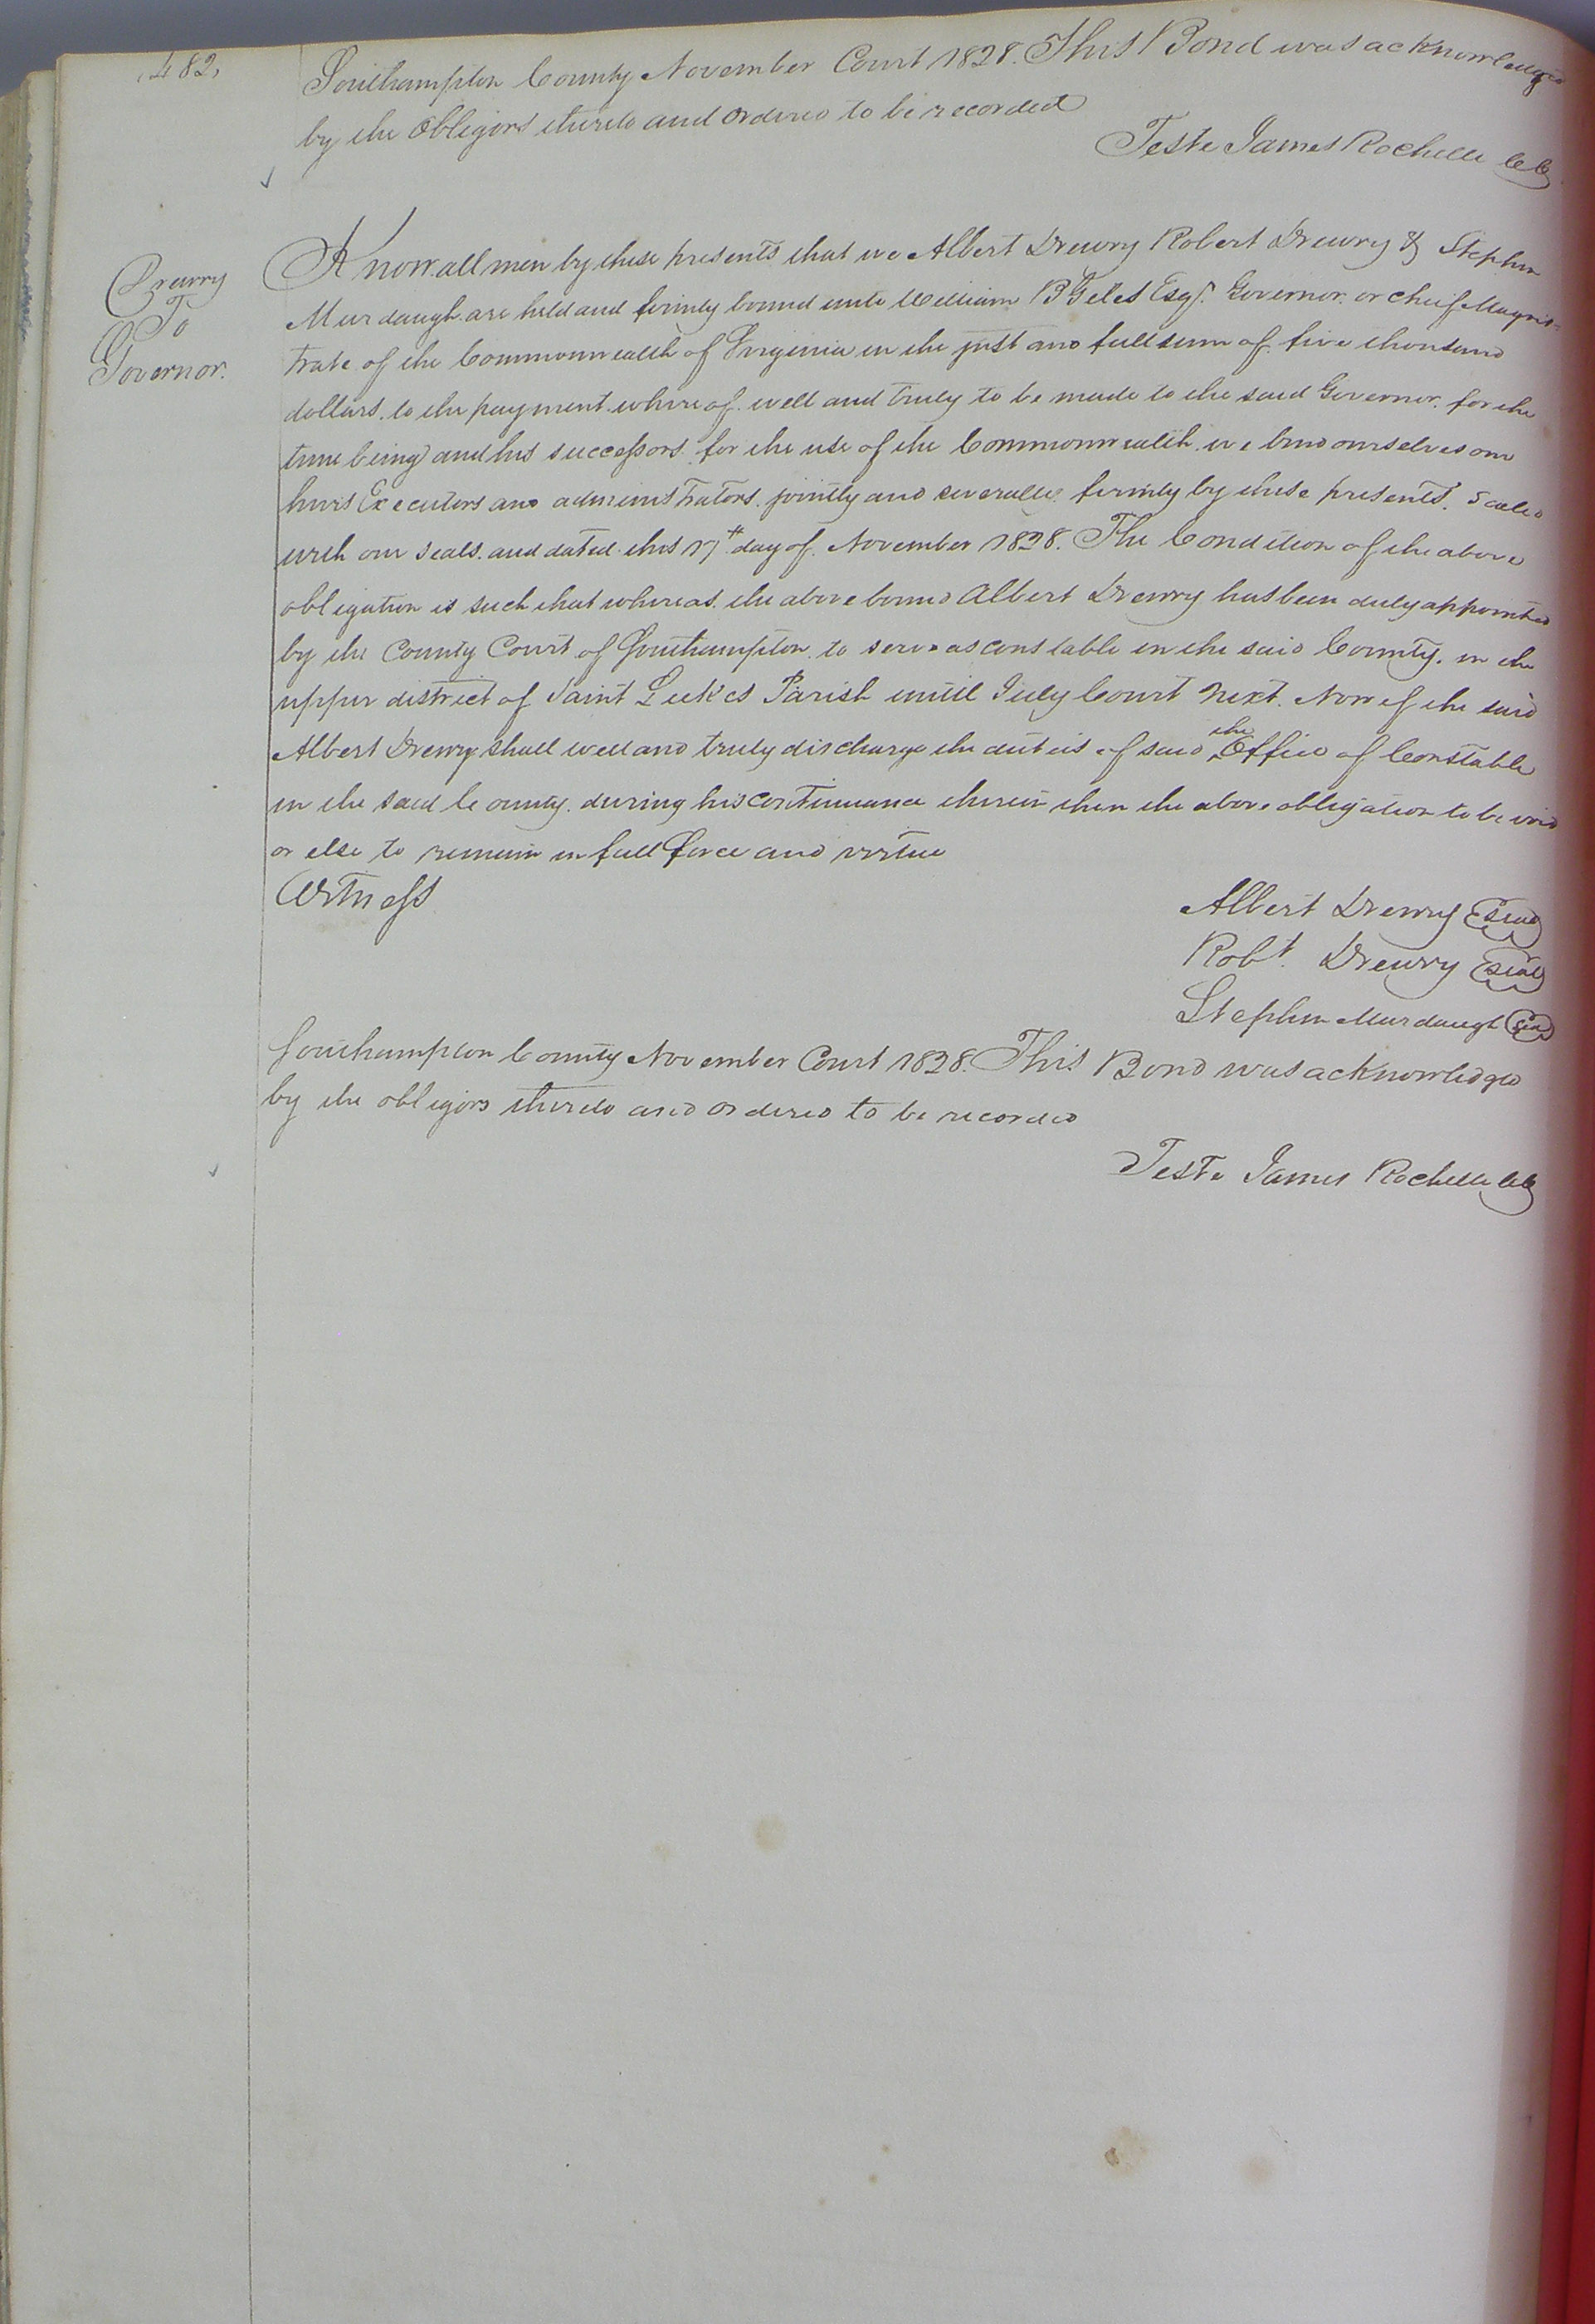 482,
Southampton County November Court 1828. This Bond was acknowledged
by the Obligors thereto and ordered to be recorded
Teste James Rochelle CC
Drewry
To
Governor.
Know all men by these presents that we Albert Drewry Robert Drewry & Stephen
Murdaugh are held and firmly bound unto William B Giles Esqr. Governor or cheif Magis=
trate of the Commonwealth of Virginia in the just and full sum of five thousand
dollars. to the payment whereof well and truly to be made to the said Governor for the
time being and his successors for the use of the Commonwealth we bind ourselves our
heirs Executors and administrators jointly and severally firmly by these presents. Sealed
with our seals and dated this 17th day of November 1828. The Condition of the above
obligation is such that whereas the above bound Albert Drewry has been duly appointed
by the County Court of Southampton to serve as constable in the said County. in the
upper district of Saint Lukes Parish until July Court next. Now if the said
Albert Drewry shall well and truly discharge the duties of said the Office of Constable
in the said County. during his continuance therein then the above obligation to be void
or else to remain in full force and virtue
Witness
Albert Drewry Seal
Robt. Drewry Seal
Stephen Murdaugh Seal
Southampton County November Court 1828. This Bond was acknowledged
by the obligors thereto and ordered to be recorded
Teste James Rochelle CC